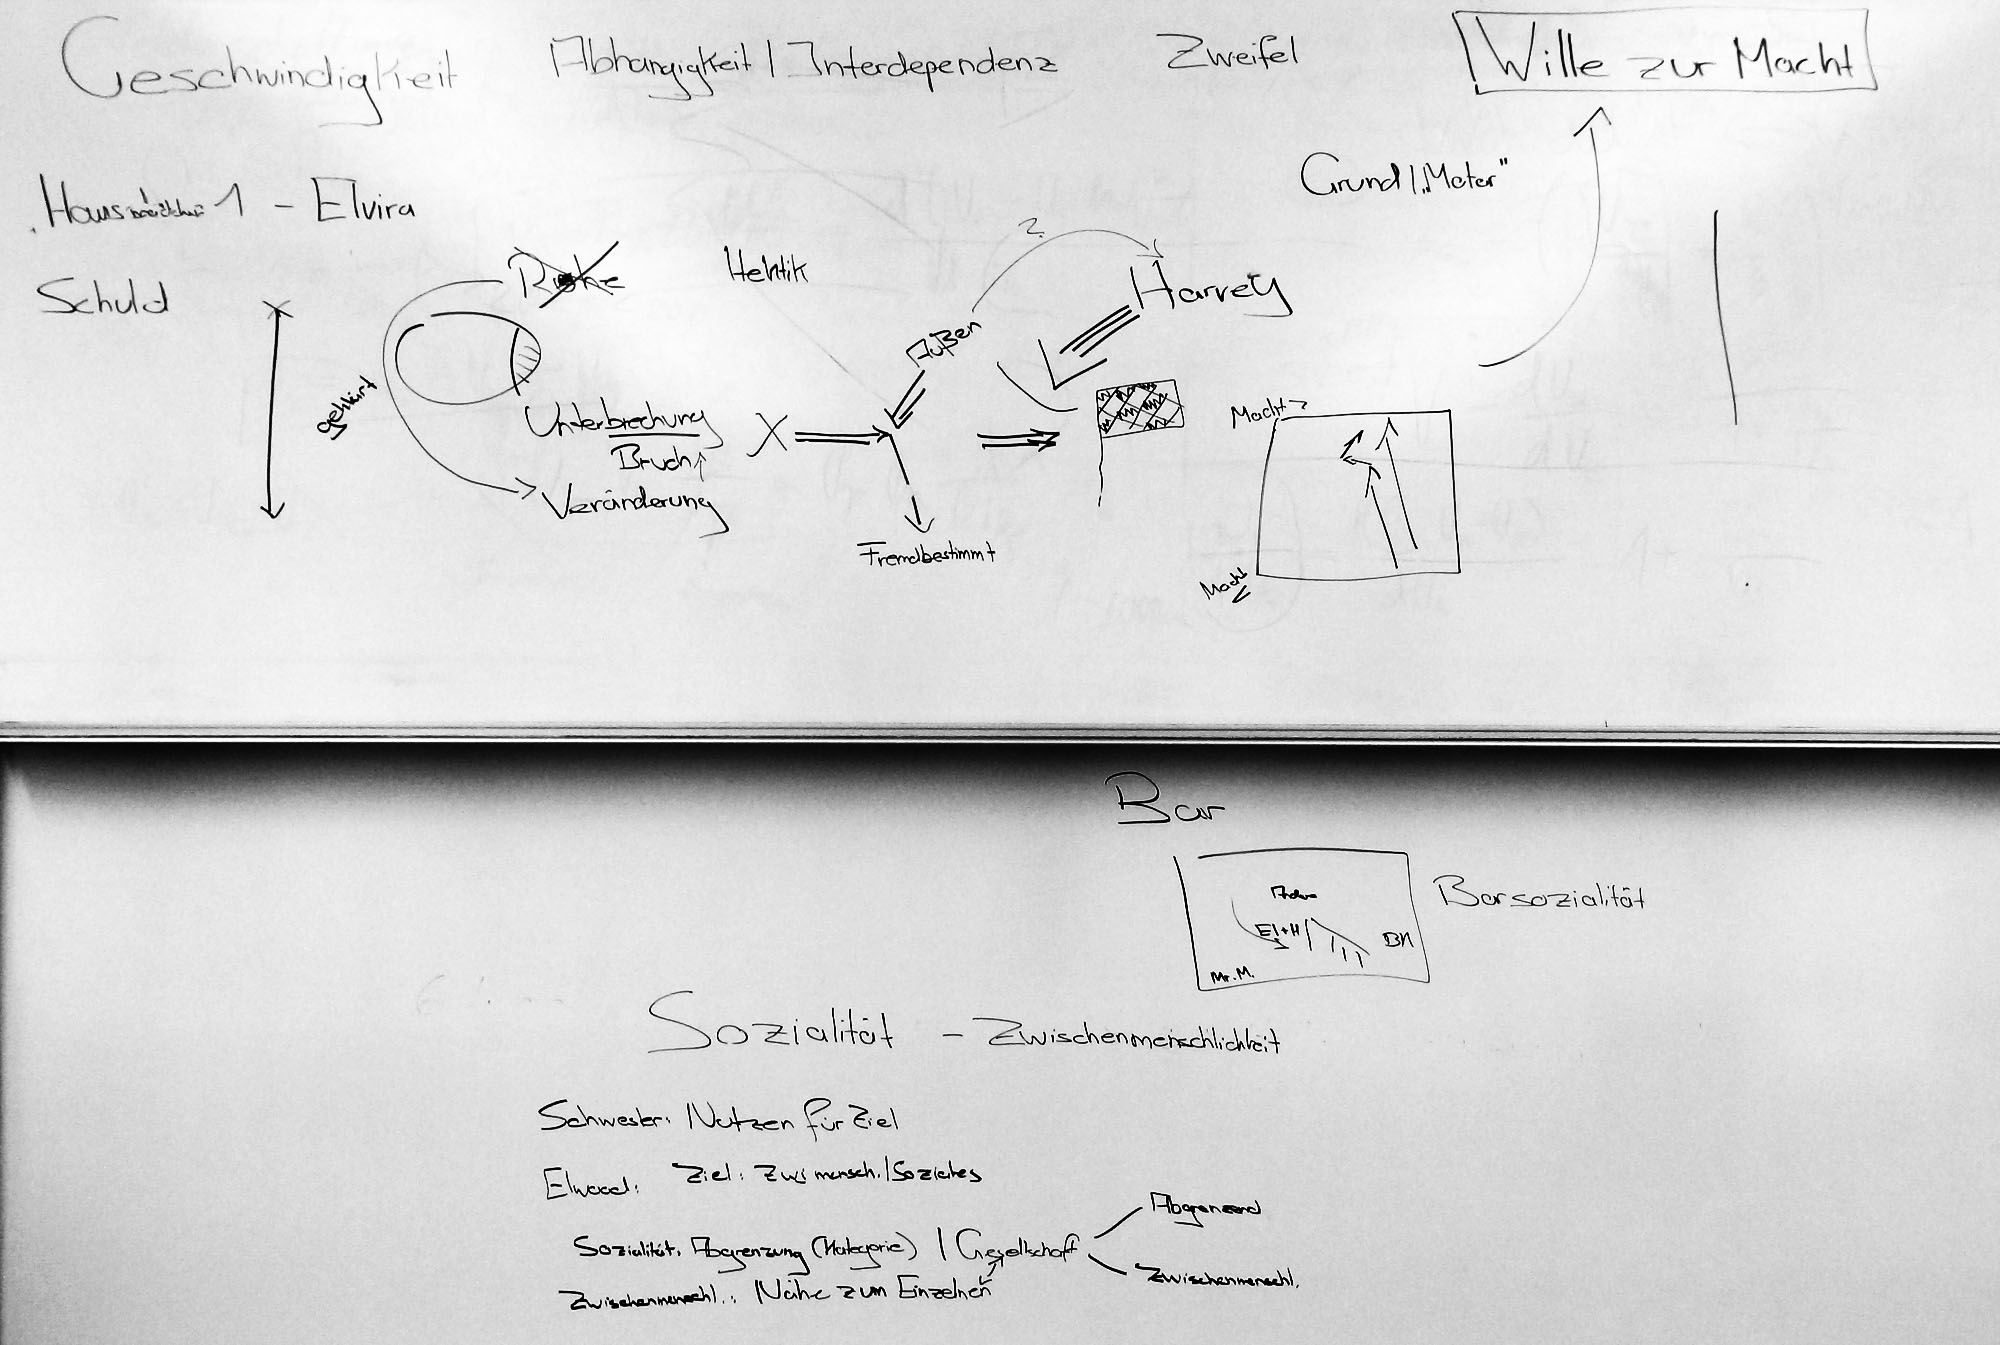 Geschwindigkeit Abhängigkeit / Interdependenz Zweifel Wille zur Macht
Grund / "Meter"
1 - Elvira
Schuld
Ruhe Hektik ? Harvey
Außen
geklärt
Unterbrechung
Bruch
Veränderung
Fremdbestimmt
Macht >
Macht <
Bar
Barsozialität
El + H
BM
Mr. M.
Sozialität - Zwischenmenschlichkeit
Schwester: Nutzen für Ziel
Elwood: Ziel: Zwi mensch. / Soziales
Sozialität: Abgrenzung (Kategorie) / Gesellschaft
Abgrenzend
Zwischenmenschl.
Zwischenmenschl.: Nähe zum Einzelnen